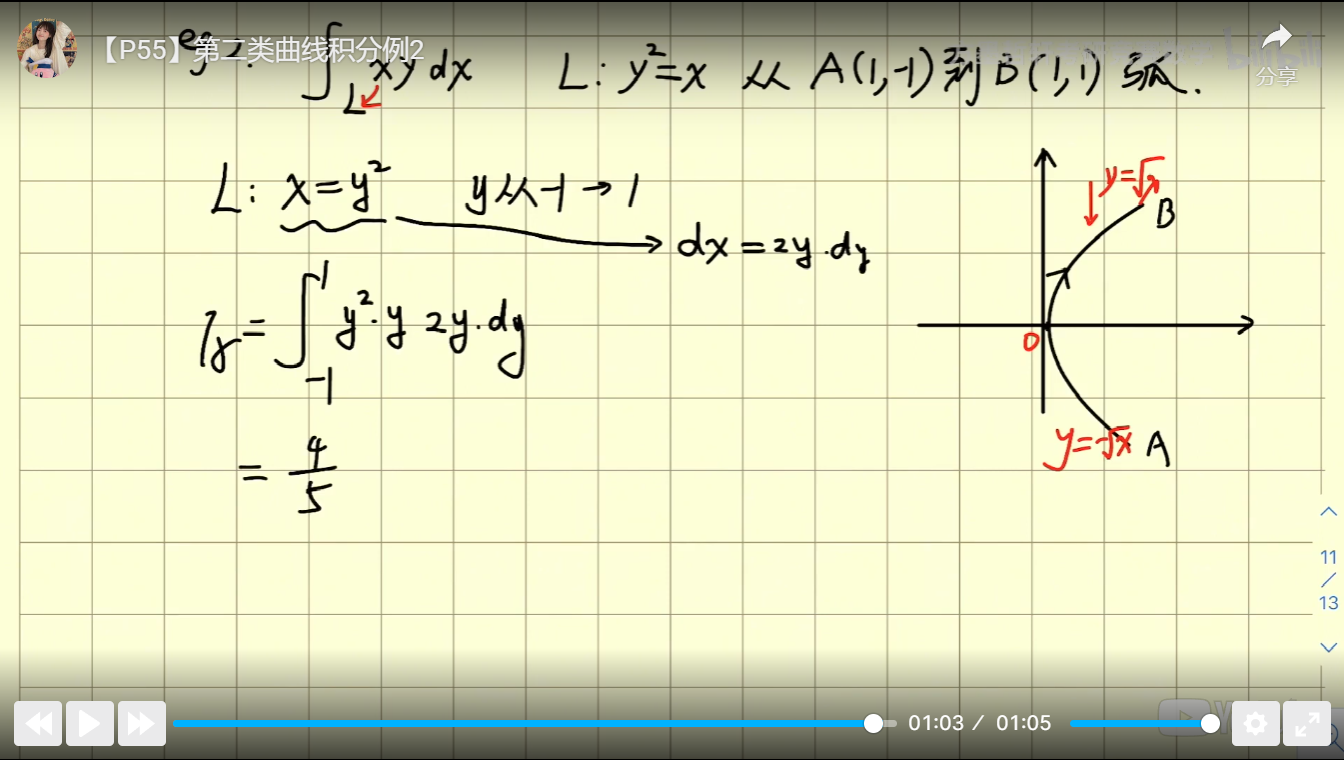 【P55】第二类曲线积分例2
eg 2: ∫_L xy dx    L: y²=x 从 A(1,-1) 到 B(1,1) 弧.
分享
L: x=y²    y从-1→1
dx=2y·dy
y=√x
B
= ∫_{-1}^{1} y²·y 2y·dy
O
y=-√x A
= 4/5
11
/
13
01:03 / 01:05